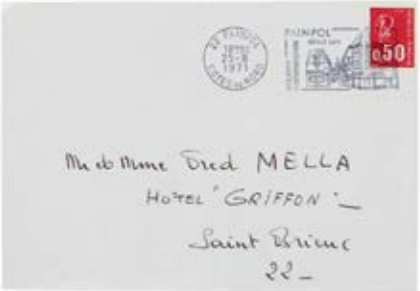 22 PAIMPOL
18H30
25-8
1971
COTES DU NORD
PAIMPOL
0,50
M et Mme Fred MELLA
HOTEL "GRIFFON"
Saint Brieuc
22